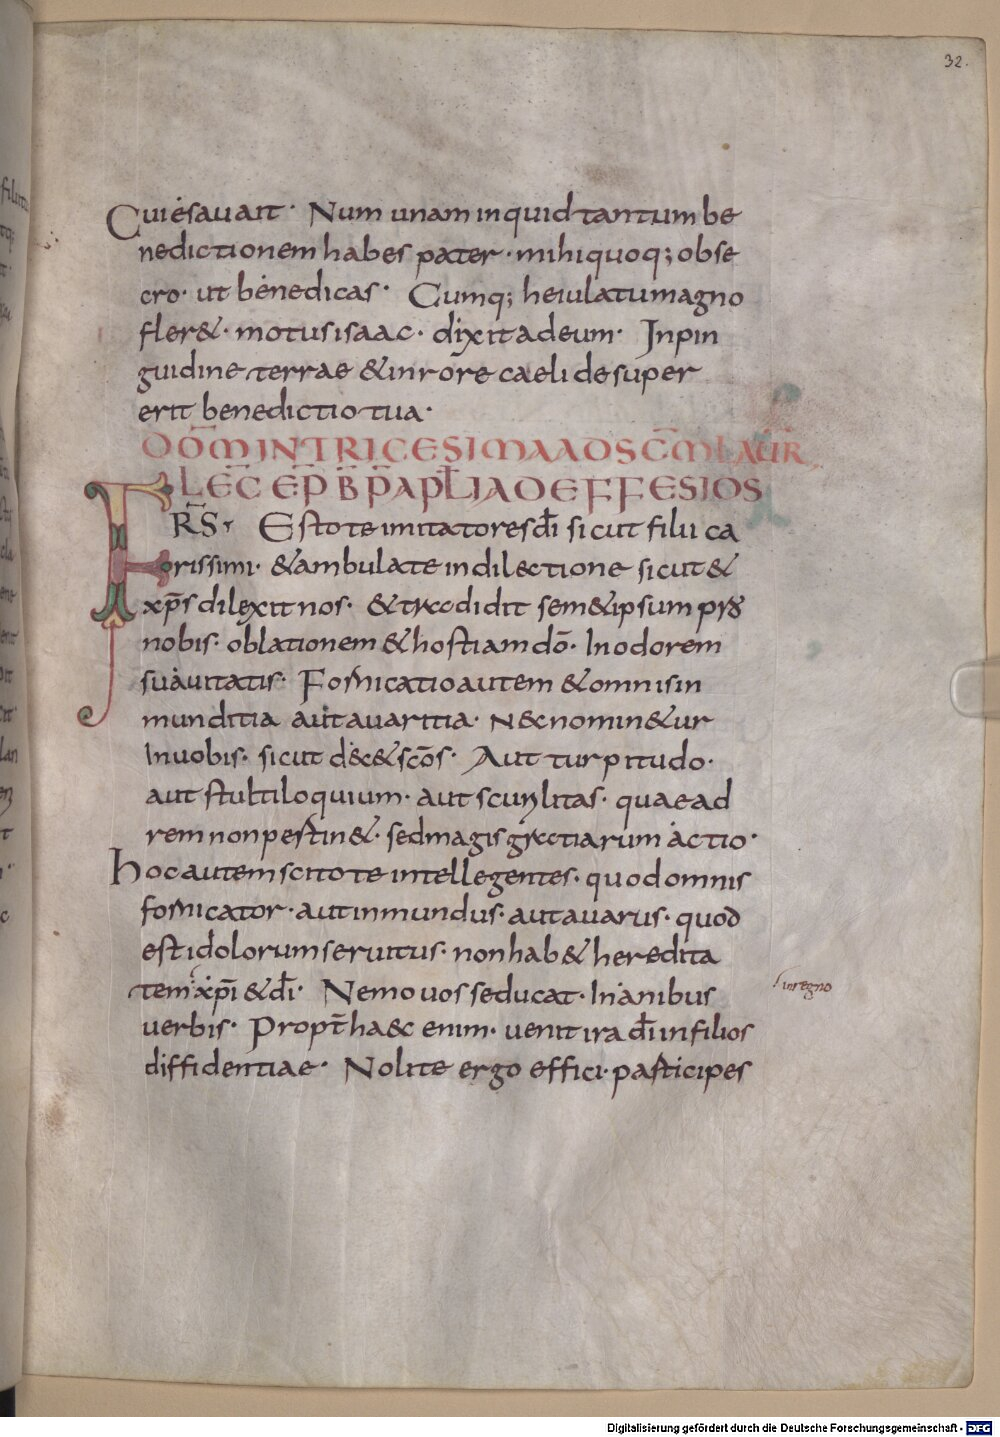 32.
Cui esau ait· Num unam inquid tantum be
nedictionem habes pater· mihi quoq; obse
cro· ut benedicas· Cumq; heiulatu magno
fler&· motus isaac· dixit ad eum· Inpin
guidine terrae & in rore caeli desuper
erit benedictio tua·
DOM̄ IN TRICESIMA AD SC̄M LAUR̄
LEC̄ EP̄ B̄ P̄ APL̄I AD EFFESIOS
FRS̄· Estote imitatores dī sicut filii ca
rissimi· & ambulate in dilectione sicut &
xp̄s dilexit nos· & tradidit sem&ipsum pro
nobis· oblationem & hostiam dō· In odorem
suauitatis· Fornicatio autem & omnis in
munditia aut auaritia· nec nomin&ur
In uobis· sicut dec& scōs· Aut turpitudo·
aut stultiloquium· aut scurilitas· quae ad
rem non pertin&· sed magis gratiarum actio·
hoc autem scitote intellegentes· quod omnis
fornicator· aut inmundus· aut auarus· quod
est idolorum seruitus· non hab& heredita
tem xp̄i & dī· Nemo uos seducat· Inanibus
in regno
uerbis· Propt̄ haec enim· uenit ira dī in filios
diffidentiae· Nolite ergo effici· participes
Digitalisierung gefördert durch die Deutsche Forschungsgemeinschaft - DFG